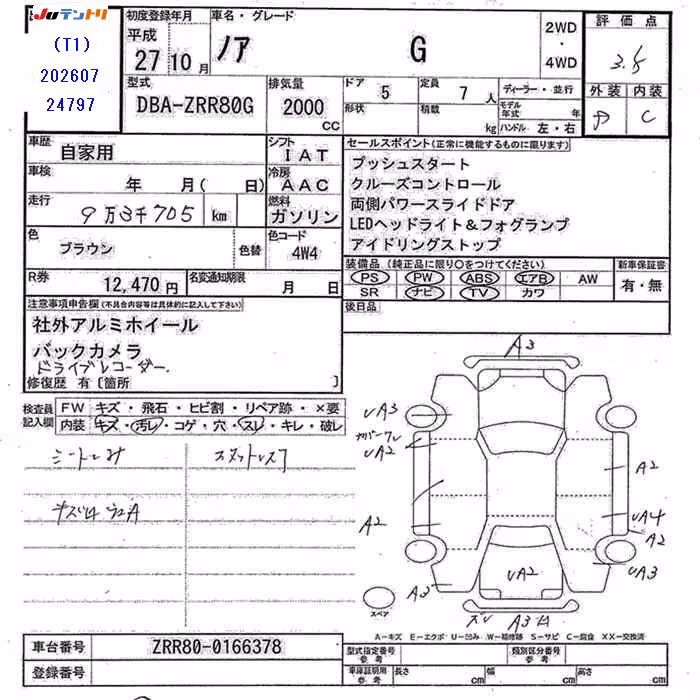 JUテントリ
(T1)
202607
24797
初度登録年月
平成
27 10月
車名・グレード
ノア G
2WD
・
4WD
評価点
3.5
外装 内装
C
型式
DBA-ZRR80G
排気量
2000
CC
ドア 5
定員 7 人
形状
積載 kg
ディーラー・並行
モデル年式 年
ハンドル 左・右
車歴 自家用
シフト IAT
車検 年 月( 日)
冷房 AAC
走行 9万3千705 km
燃料 ガソリン
色 ブラウン
色替
色コード 4W4
R券 12,470円
名変通知期限 月 日
セールスポイント(正常に機能するものに限ります)
プッシュスタート
クルーズコントロール
両側パワースライドドア
LEDヘッドライト&フォグランプ
アイドリングストップ
装備品(純正品に限り○をつけてください)
新車保証書
PS PW ABS エアB AW
SR ナビ TV カワ
有・無
後日品
注意事項申告欄(不具合内容等は具体的に記入して下さい)
社外アルミホイール
バックカメラ
ドライブレコーダー
修復歴 有〔箇所 〕
検査員記入欄
FW キズ・飛石・ヒビ割・リペア跡・×要
内装 キズ・汚レ・コゲ・穴・スレ・キレ・破レ
A3
UA3
UA2
A2
A2
UA4
A2
UA3
UA2
A3
スペア
A-キズ E-エクボ U-凹み W-補修跡 S-サビ C-腐食 XX-交換済
車台番号 ZRR80-0166378
登録番号
型式指定番号 参考
類別区分番号 参考
車庫証明用 参考
長さ cm
幅 cm
高さ cm